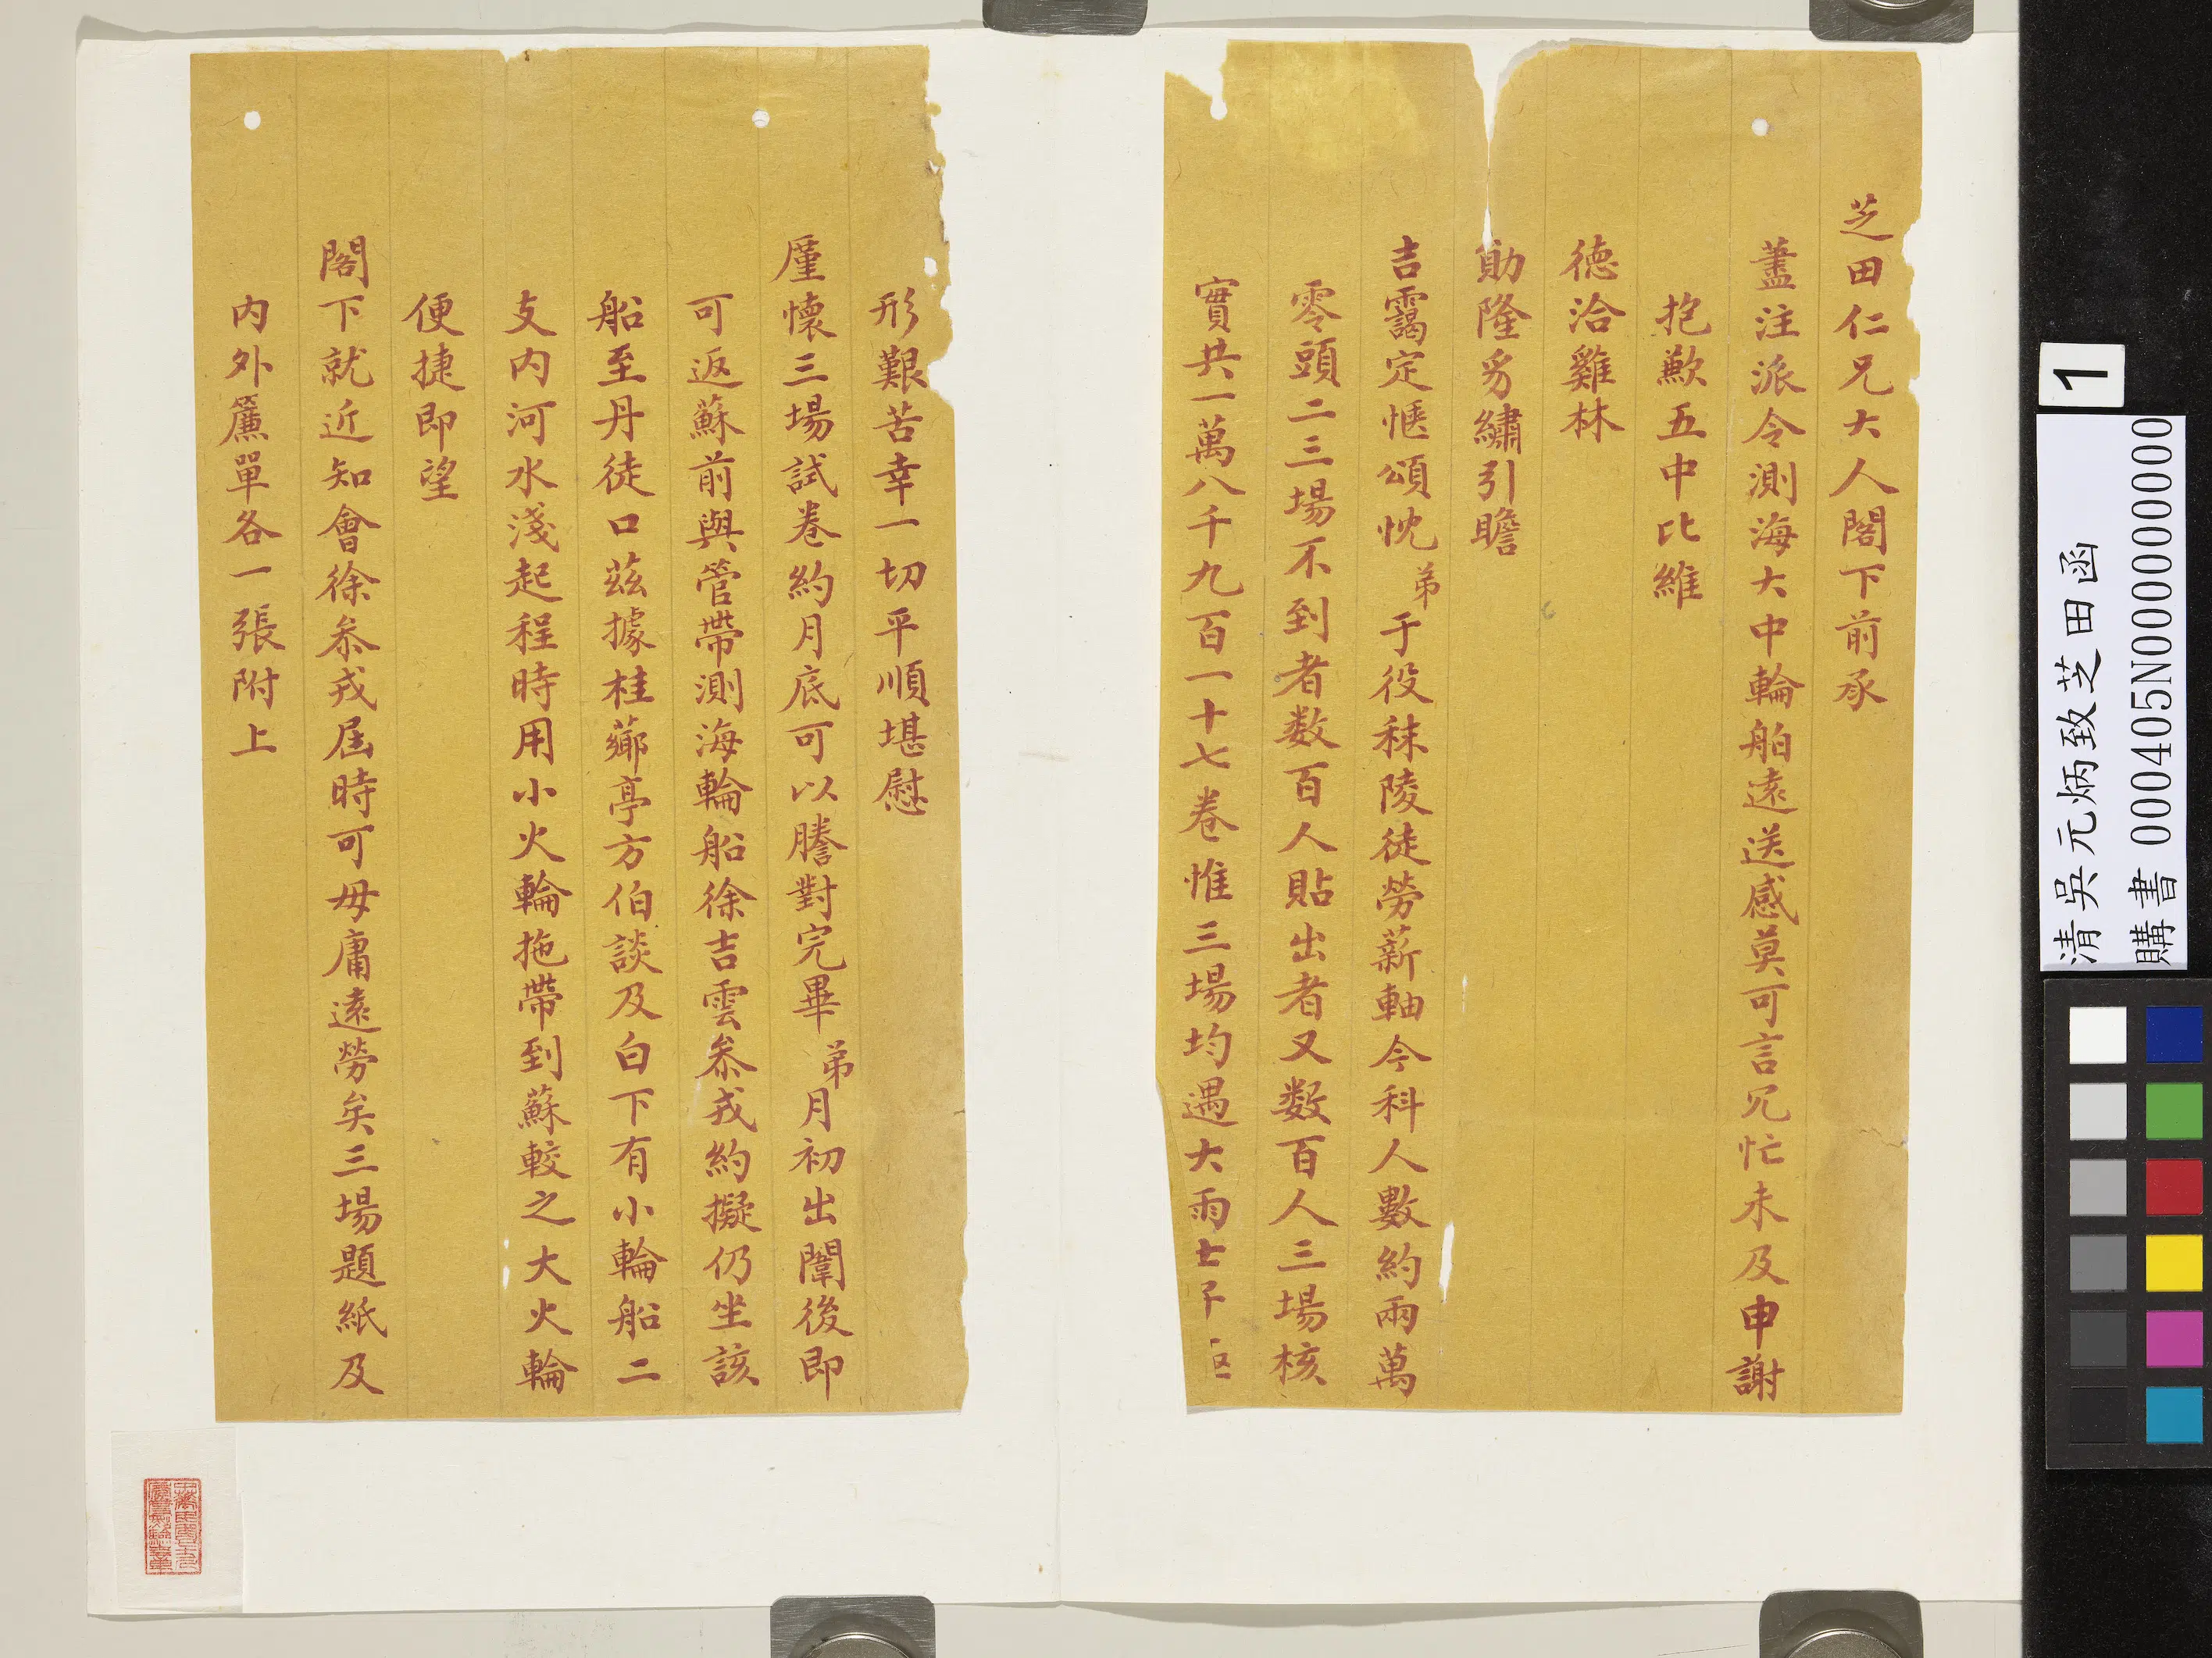 芝田仁兄大人閣下前承
藎注派令測海大中輪舶遠送感莫可言冗忙未及申謝
抱歉五中比維
德洽雞林
勛隆豸繡引瞻
吉靄定愜頌忱弟于役秣陵徒勞薪軸今科人數約兩萬
零頭二三場不到者数百人貼出者又数百人三場核
實共一萬八千九百一十七卷惟三場均遇大雨士子
形艱苦幸一切平順堪慰
廑懷三場試卷約月底可以謄對完畢弟月初出闈後即
可返蘇前與管帶測海輪船徐吉雲叅戎約擬仍坐該
船至丹徒口茲據桂薌亭方伯談及白下有小輪船二
支内河水淺起程時用小火輪拖帶到蘇較之大火輪
便捷即望
閣下就近知會徐叅戎屆時可毋庸遠勞矣三場題紙及
内外簾單各一張附上
1
清吳元炳致芝田函
購書 000405N000000000